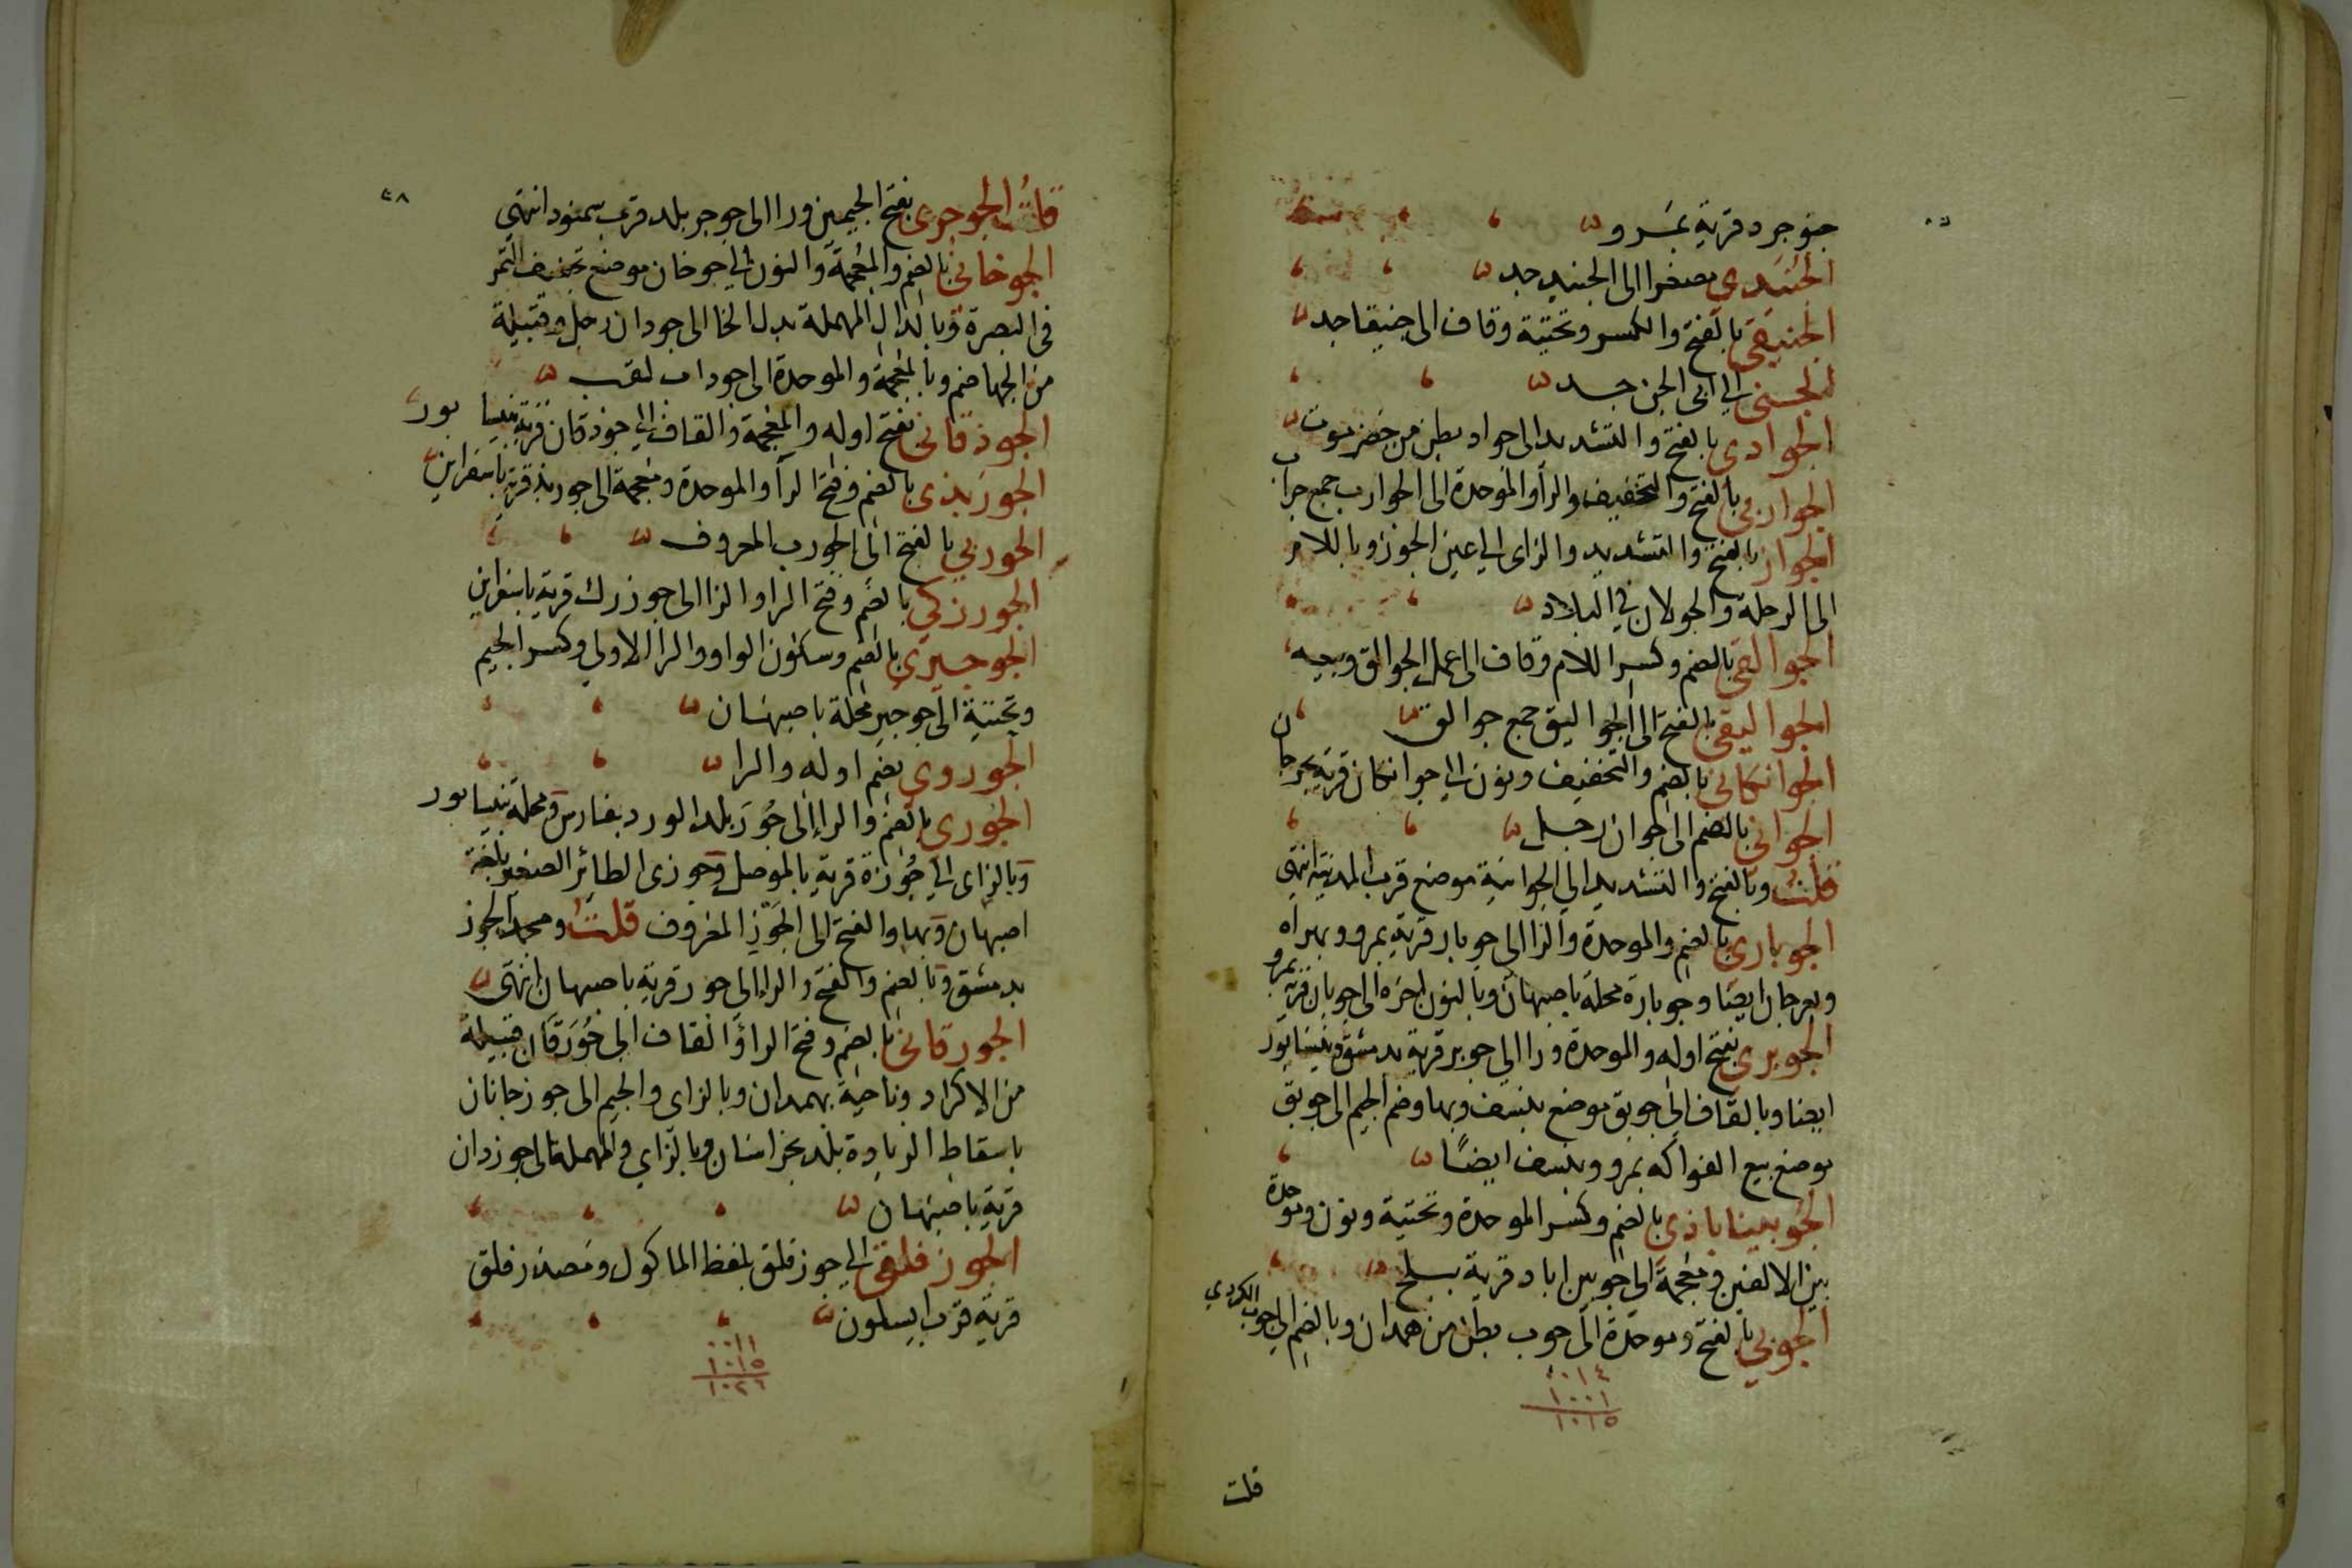 جنوجرد قرية بمرو
الجنيدي مصغرا الى الجنيد جد
الجنيقي بالفتح والكسر وتحتية وقاف الى جنيقا جد
الجني الى ابى الجن جد
الجوادي بالفتح والتشديد الى جواد بطن من حضرموت
الجواربي بالفتح والتخفيف والرا والموحدة الى الجوارب جمع جراب
الجواز بالفتح والتشديد والزاى الى عين الجوز وباللام
الى الرحلة والجولان في البلاد
الجوالقي بالضم وكسر اللام وقاف الى عمل الجوالق وبيعه
الجواليقي بالفتح الى الجواليق جمع جوالق
الجوانكاني بالضم والتخفيف ونون الى جوانكان قرية بجرجان
الجواني بالضم الى جوان رجل
قلت وبالفتح والتشديد الى الجوانية موضع قرب المدينة انتهى
الجوباري بالضم والموحدة والرا الى جوبار قرية بمرو وبهراه
وبجرجان ايضا وجوبارة محلة باصبهان وبالنون اخره الى جوبان قرية بمرو
الجوبري بفتح اوله والموحدة ورا الى جوبر قرية بدمشق وبنيسابور
ايضا وبالقاف الى جوبق موضع بنسف وبها وضم الجيم الى جوبق
موضع بيع الفواكه بمرو وبنسف ايضًا
الجوبيناباذي بالضم وكسر الموحدة وتحتية ونون وموحدة
بين الالفين ومعجمة الى جوبين اباد قرية ببلخ
الجوبي بالفتح وموحدة الى جوب بطن من همدان وبالضم الى جوب الكردي
١٠١٤
١٠٠١
١٠١٥
قلت
٤٨
قلت الجوجري بفتح الجيمين ورا الى جوجر بلد قرب سمنود انتهى
الجوخاني بالضم والمعجمة والنون الى جوخان موضع تجفيف التمر
فى البصرة وبالدال المهملة بدل الخا الى جودان رجل وقبيلة
من الجهاضم وبالمعجمة والموحدة الى جوذاب لقب
الجوذقاني بفتح اوله والمعجمة والقاف الى جوذقان قرية بنيسابور
الجوربذى بالضم وفتح الرا والموحدة ومعجمة الى جوربذ قرية باسفراين
الجوربي بالفتح الى الجورب المعروف
الجورزكي بالضم وفتح الرا والزا الى جوزرك قرية باسفراين
الجوجيري بالضم وسكون الواو والرا الاولى وكسر الجيم
وتحتية الى جوجير محلة باصبهان
الجوروى بضم اوله والرا
الجوري بالضم والرا الى جُور بلد الورد بفارس ومحلة بنيسابور
وبالزاى الى جُوزة قرية بالموصل وجوزى الطائر الصغير بلغة
اصبهان وبها والفتح الى الجَوز المعروف قلت ومحمد الجوز
بدمشق وبالضم والفتح والرا الى جور قرية باصبهان انتهى
الجورقاني بالضم وفتح الرا والقاف الى جُورَقَان قبيلة
من الاكراد وناحية بهمدان وبالزاى والجيم الى جوزجانان
باسقاط الزيادة بلد بخراسان وبالزاي والمهملة الى جوزدان
قرية باصبهان
الجوزفلقي الى جوز فلق بلفظ الماكول ومصدر فلق
قرية قرب ابسكون
٠٠١١
١٠١٥
١٠٢٦